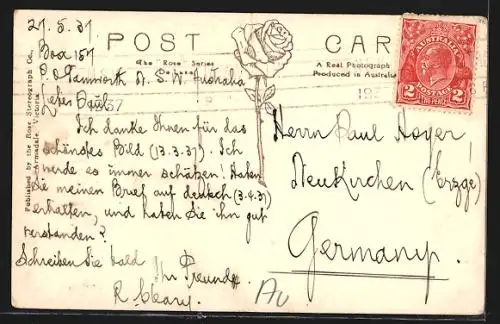 21.5.37
Box 157
P.O Tamworth N. S. W Australia
Lieber Paul,
Ich danke Ihnen für das
schönstes Bild (13.3.37). Ich
werde es immer schätzen. Haben
Sie meinen Brief auf deutsch (3.4.37)
erhalten, und haben Sie ihn gut
verstanden?
Schreiben Sie bald
Ihr Freund
R Cleary.
POST CARD
The "Rose Series"
A Real Photograph
Produced in Australia
Published by the Rose Stereograph Co.
Armadale, Victoria
AUSTRALIA
POSTAGE
2 2
TWO PENCE
37
Herrn Paul Hoyer
Neukirchen (Erzge)
Germany.
Au